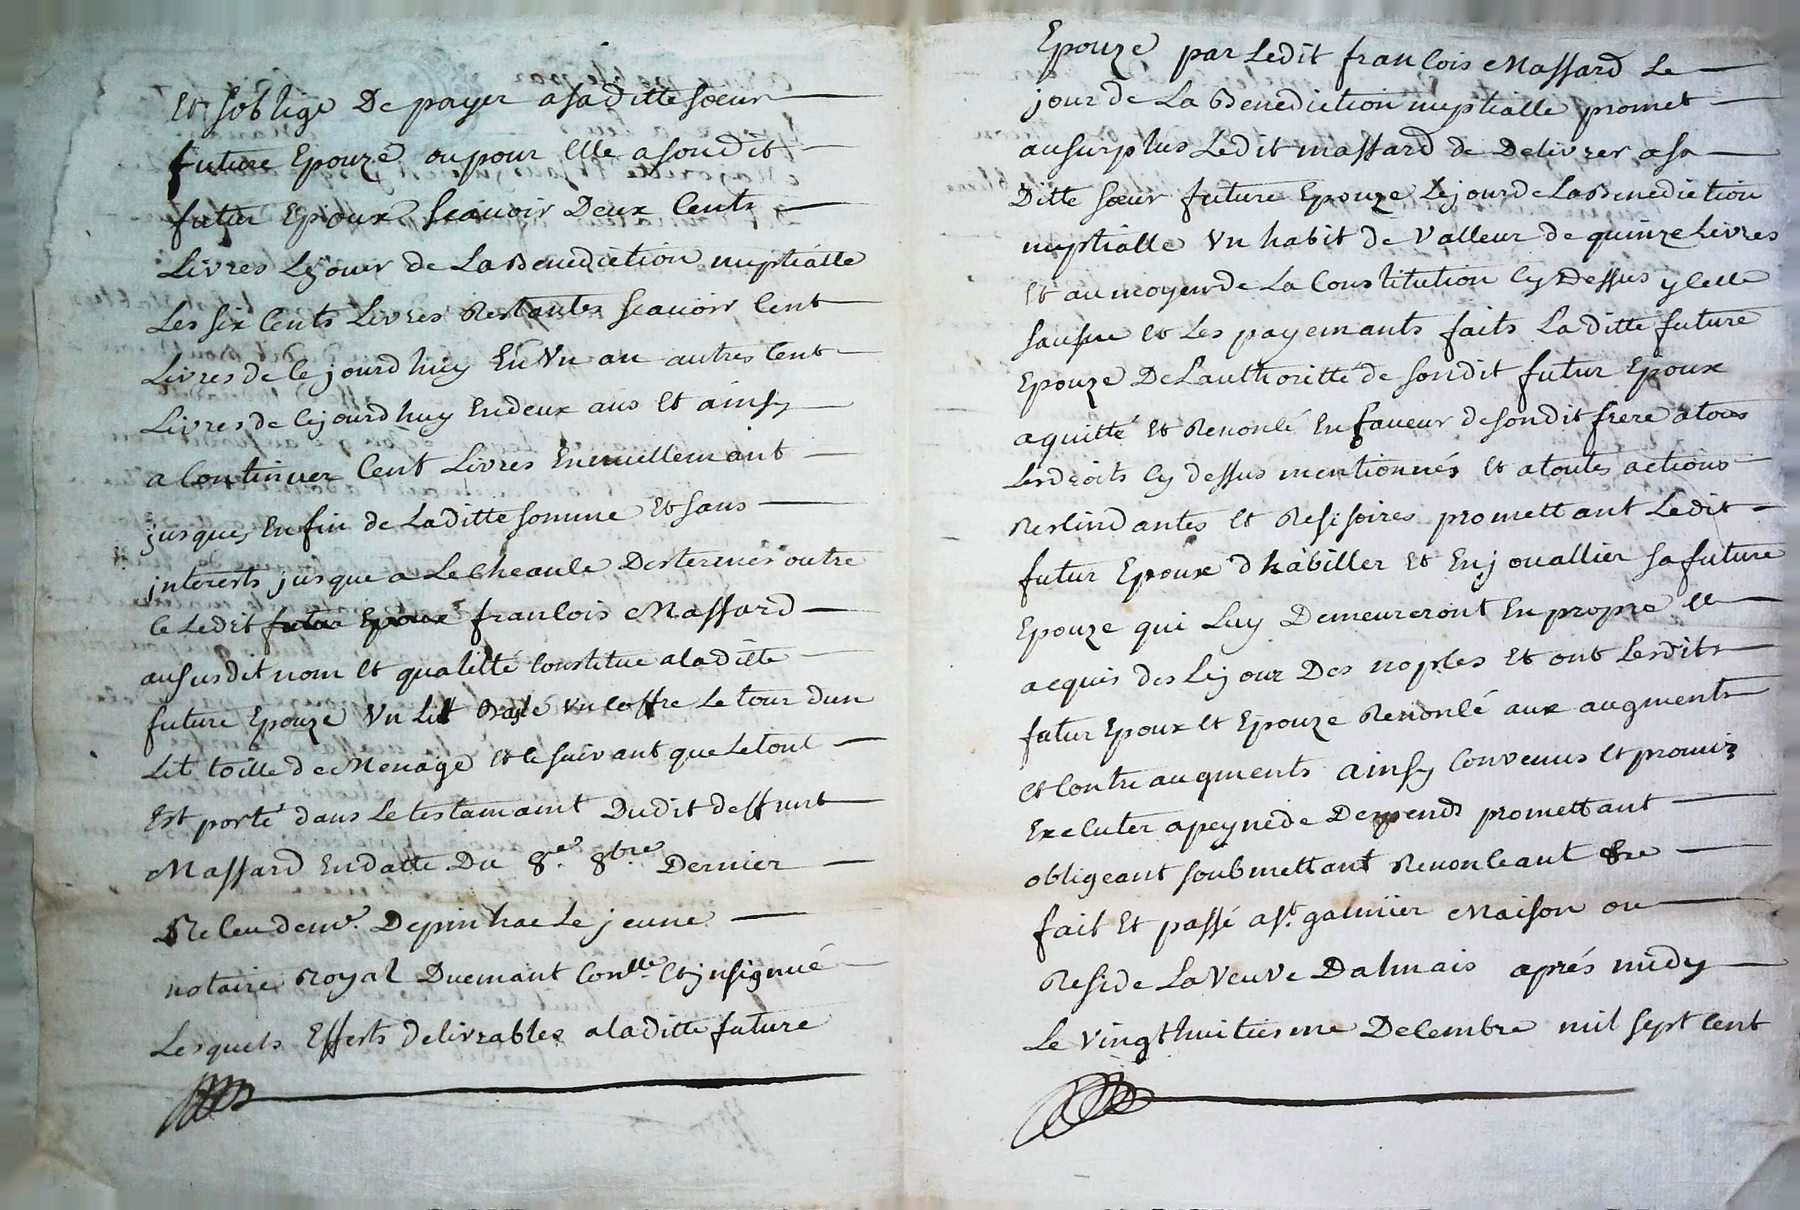 Et soblige De payer a sa ditte sœur
future Epouze ou pour Elle a son dit
futur Epoux Scauoir Deux Cents
Livres Le jour de La Benediction nuptialle
Les six Cents Livres Restantes Scauoir Cent
Livres de Ce jourd huy En Vn an autres Cent
Livres de Ce jourd huy En deux ans Et ainsy
a Continuer Cent Livres Ennuellemant
jusques En fin de La ditte somme Et sans
jnterests jusque a Lecheance Des termes outre
ce Ledit futur Epoux francois Massard
au susdit nom Et qualitté Constitue a la ditte
future Epouze Vn Lit Vn Coffre Le tour dun
Lit toille de Menage Et ce suivant que Le tout
Est porté dans Le testamant Dudit deffunt
Massard En datte Du 8e. 8bre Dernier
Receu de me. Depinhac Le jeune
notaire Royal Duemant Conllé. Et jnsignué
Lesquels Effects delivrables a la ditte future
Epouze par Ledit francois Massard Le
jour de La Benediction nuptialle promet
au surplus Ledit massard de Delivrer a sa
Ditte sœur future Epouze Le jour de La Benediction
nuptialle Vn habit de Valleur de quinze Livres
Et au moyen de La Constitution Cy Dessus ycelle
sausue et Les payemants faits La ditte future
Epouze De Lauthoritté de son dit futur Epoux
a quitté Et Renoncé En faveur de son dit frere a tous
Les droits Cy dessus mentionnés Et a toutes actions
Rescindantes Et Resisoires promettant Ledit
futur Epoux dhabiller Et Enjouallier sa future
Epouze qui Luy Demeureront En propre Et
acquis des Le jour Des nopses Et ont Lesdits
futur Epoux Et Epouze Renoncé aux augments
et Contre augments ainsy Convenus Et promis
Executer a peyne de Depends promettant
obligeant soubmettant Renonceant &re
fait Et passé a st. galmier Maison ou
Reside La Veuve Dalmais aprés midy
Le Vingthuitiesme Decembre mil sept Cent